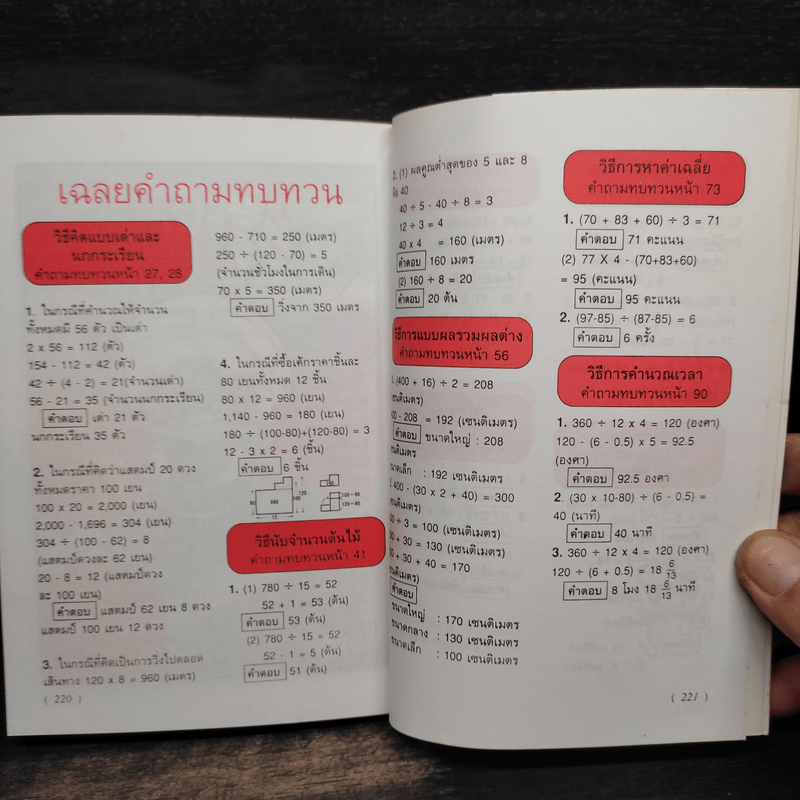 เฉลยคำถามทบทวน
วิธีคิดแบบเต่าและ
นกกระเรียน
คำถามทบทวนหน้า 27, 28
1. ในกรณีที่คำนวณให้จำนวน
ทั้งหมดมี 56 ตัว เป็นเต่า
2 x 56 = 112 (ตัว)
154 - 112 = 42 (ตัว)
42 ÷ (4 - 2) = 21(จำนวนเต่า)
56 - 21 = 35 (จำนวนนกกระเรียน)
คำตอบ เต่า 21 ตัว
นกกระเรียน 35 ตัว
2. ในกรณีที่คิดว่าแสตมป์ 20 ดวง
ทั้งหมดราคา 100 เยน
100 x 20 = 2,000 (เยน)
2,000 - 1,696 = 304 (เยน)
304 ÷ (100 - 62) = 8
(แสตมป์ดวงละ 62 เยน)
20 - 8 = 12 (แสตมป์ดวง
ละ 100 เยน)
คำตอบ แสตมป์ 62 เยน 8 ดวง
แสตมป์ 100 เยน 12 ดวง
3. ในกรณีที่คิดเป็นการวิ่งไปตลอด
เส้นทาง 120 x 8 = 960 (เมตร)
( 220 )
960 - 710 = 250 (เมตร)
250 ÷ (120 - 70) = 5
(จำนวนชั่วโมงในการเดิน)
70 x 5 = 350 (เมตร)
คำตอบ วิ่งจาก 350 เมตร
4. ในกรณีที่ซื้อเค้กราคาชิ้นละ
80 เยนทั้งหมด 12 ชิ้น
80 x 12 = 960 (เยน)
1,140 - 960 = 180 (เยน)
180 ÷ (100-80)+(120-80) = 3
12 - 3 x 2 = 6 (ชิ้น)
คำตอบ 6 ชิ้น
80
100
120
12
100-80
120-80
วิธีนับจำนวนต้นไม้
คำถามทบทวนหน้า 41
1. (1) 780 ÷ 15 = 52
52 + 1 = 53 (ต้น)
คำตอบ 53 (ต้น)
(2) 780 ÷ 15 = 52
52 - 1 = 5 (ต้น)
คำตอบ 51 (ต้น)
2. (1) ผลคูณต่ำสุดของ 5 และ 8
คือ 40
40 ÷ 5 - 40 ÷ 8 = 3
12 ÷ 3 = 4
40 x 4 = 160 (เมตร)
คำตอบ 160 เมตร
(2) 160 ÷ 8 = 20
คำตอบ 20 ต้น
วิธีการแบบผลรวมผลต่าง
คำถามทบทวนหน้า 56
1. (400 + 16) ÷ 2 = 208
เซนติเมตร)
00 - 208 = 192 (เซนติเมตร)
คำตอบ ขนาดใหญ่ : 208
เซนติเมตร
ขนาดเล็ก : 192 เซนติเมตร
2. 400 - (30 x 2 + 40) = 300
เซนติเมตร)
00 ÷ 3 = 100 (เซนติเมตร)
00 + 30 = 130 (เซนติเมตร)
00 + 30 + 40 = 170
เซนติเมตร)
คำตอบ
ขนาดใหญ่ : 170 เซนติเมตร
ขนาดกลาง : 130 เซนติเมตร
ขนาดเล็ก : 100 เซนติเมตร
วิธีการหาค่าเฉลี่ย
คำถามทบทวนหน้า 73
1. (70 + 83 + 60) ÷ 3 = 71
คำตอบ 71 คะแนน
(2) 77 X 4 - (70+83+60)
= 95 (คะแนน)
คำตอบ 95 คะแนน
2. (97-85) ÷ (87-85) = 6
คำตอบ 6 ครั้ง
วิธีการคำนวณเวลา
คำถามทบทวนหน้า 90
1. 360 ÷ 12 x 4 = 120 (องศา)
120 - (6 - 0.5) x 5 = 92.5
(องศา)
คำตอบ 92.5 องศา
2. (30 x 10-80) ÷ (6 - 0.5) =
40 (นาที)
คำตอบ 40 นาที
3. 360 ÷ 12 x 4 = 120 (องศา)
120 ÷ (6 + 0.5) = 18 6/13
คำตอบ 8 โมง 18 6/13 นาที
( 221 )